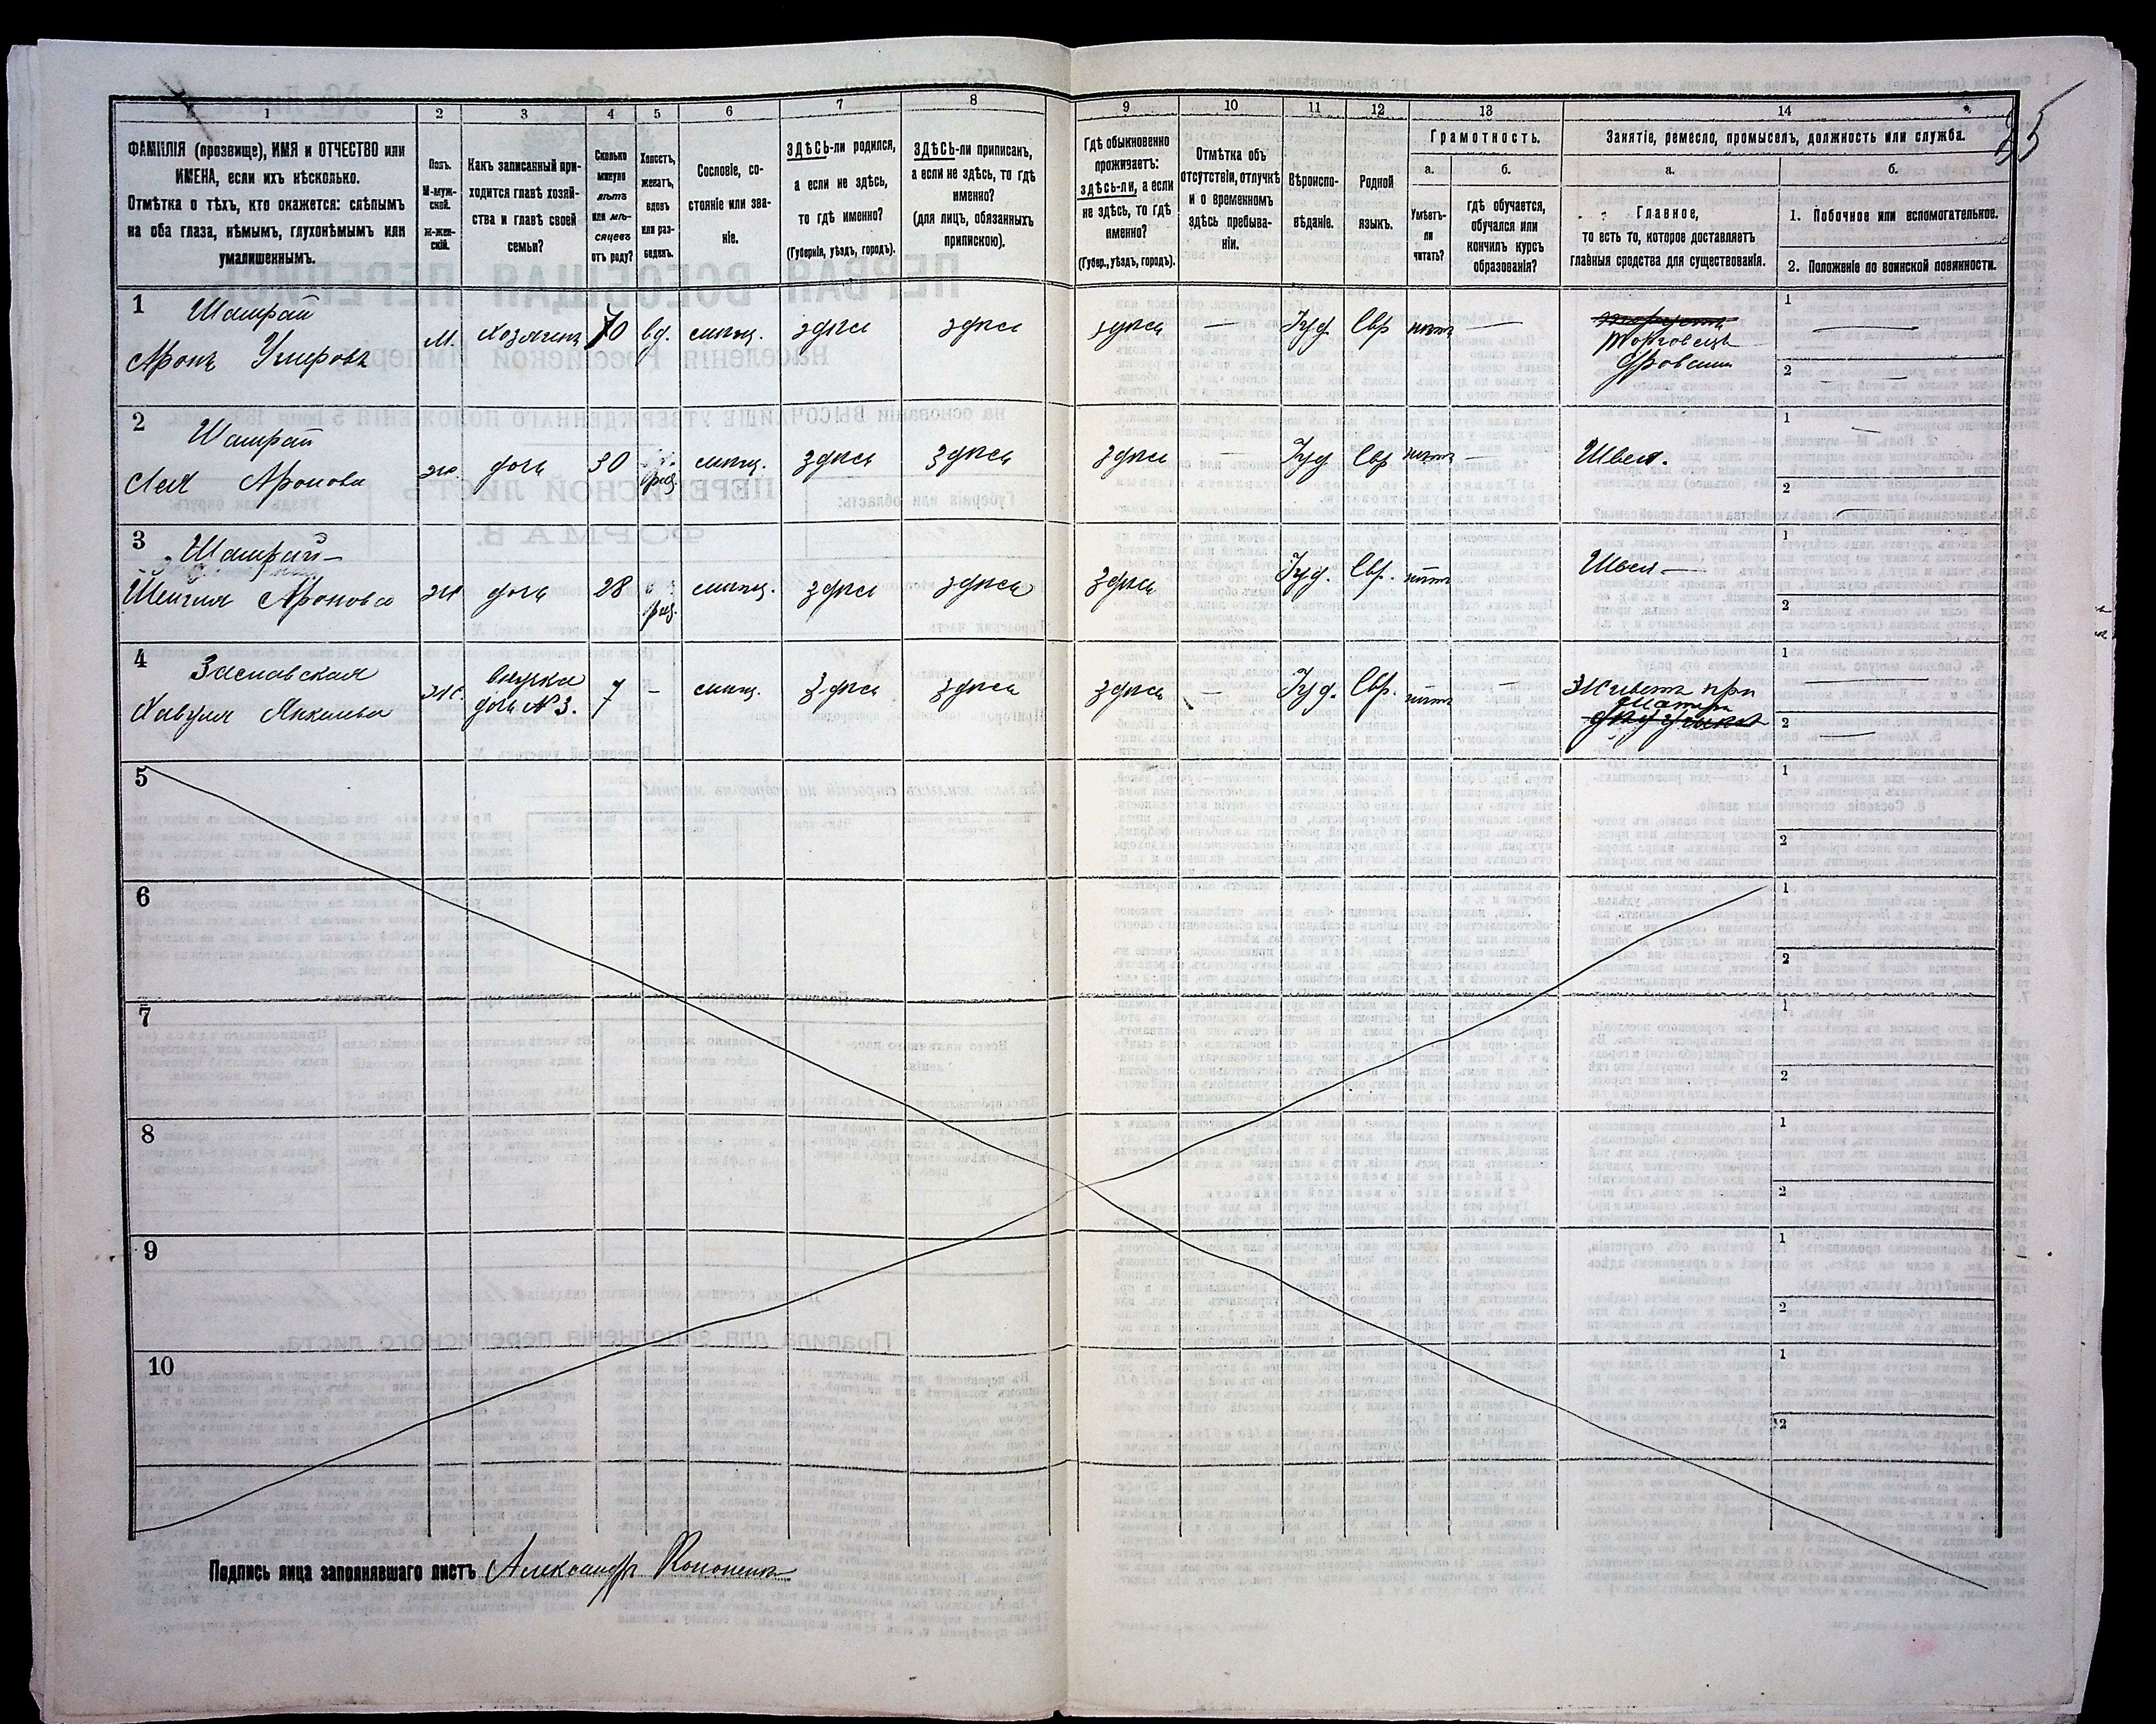 35
1 2 3 4 5 6 7 8 9 10 11 12 13 14
ФАМИЛІЯ (прозвище), ИМЯ и ОТЧЕСТВО или
ИМЕНА, если ихъ нѣсколько.
Отмѣтка о тѣхъ, кто окажется: слѣпымъ
на оба глаза, нѣмымъ, глухонѣмымъ или
умалишеннымъ.
Полъ.
М-муж-
ской.
Ж-жен-
скій.
Какъ записанный при-
ходится главѣ хозяй-
ства и главѣ своей
семьи?
Сколько
минуло
лѣтъ
или мѣ-
сяцевъ
отъ роду?
Холостъ,
женатъ,
вдовъ
или раз-
веденъ.
Сословіе, со-
стояніе или зва-
ніе.
ЗДѢСЬ-ли родился,
а если не здѣсь,
то гдѣ именно?
(Губернія, уѣздъ, городъ).
ЗДѢСЬ-ли приписанъ,
а если не здѣсь, то гдѣ
именно?
(для лицъ, обязанныхъ
припискою).
Гдѣ обыкновенно
проживаетъ:
здѣсь-ли, а если
не здѣсь, то гдѣ
именно?
(Губер., уѣздъ, городъ).
Отмѣтка объ
отсутствіи, отлучкѣ
и о временномъ
здѣсь пребыва-
ніи.
Вѣроиспо-
вѣданіе.
Родной
языкъ.
Грамотность.
а.
Умѣетъ-
ли
читать?
б.
гдѣ обучается,
обучался или
кончилъ курсъ
образованія?
Занятіе, ремесло, промыселъ, должность или служба.
а.
Главное,
то есть то, которое доставляетъ
главныя средства для существованія.
б.
1. Побочное или вспомогательное.
2. Положеніе по воинской повинности.
1 Шамрай
Аронъ М. Хозяинъ 70 вд. мѣщ. здѣсь здѣсь здѣсь — Іуд. Евр нѣтъ — Торговецъ
дровами
1 —
2 —
2 Шамрай
Лея Аронова ж. дочь 30 мѣщ. здѣсь здѣсь здѣсь — Іуд Евр нѣтъ — Швея.
1
2
3 Шамрай
Шейгля Аронова ж дочь 28 мѣщ. здѣсь здѣсь здѣсь Іуд. Евр. нѣтъ Швея —
1
2
4 Заславская
Хавуля Янкелева ж. внучка
дочь №3. 7 — мѣщ. здѣсь здѣсь здѣсь — Іуд. Евр. нѣтъ — Живетъ при
матери
1 —
2 —
5 1
2
6 1
2
7 1
2
8 1
2
9 1
2
10 1
2
Подпись лица заполнявшаго листъ Александръ Кононенко